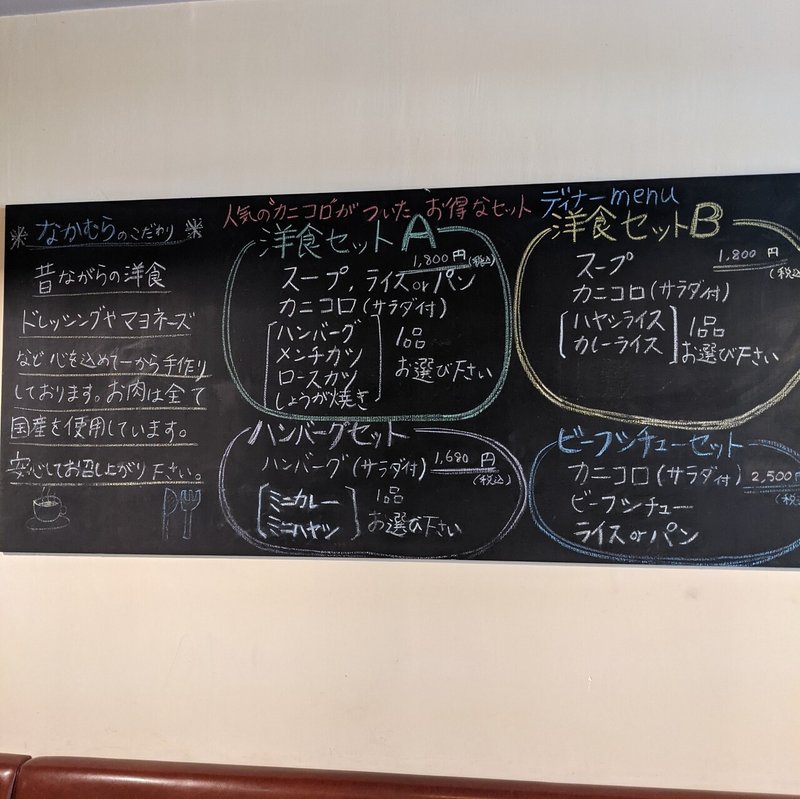 なかむらのこだわり
昔ながらの洋食
ドレッシングやマヨネーズ
など心を込めて一から手作り
しております。お肉は全て
国産を使用しています。
安心してお召し上がり下さい。
人気の"カニコロ"がついた お得なセット
ディナーmenu
洋食セットA
1,800円(税込)
スープ, ライス or パン
カニコロ(サラダ付)
ハンバーグ
メンチカツ
ロースカツ
しょうが焼き
1品
お選び下さい
洋食セットB
1,800円
(税込
スープ
カニコロ(サラダ付)
ハヤシライス
カレーライス
1品
お選び下さい
ハンバーグセット
ハンバーグ(サラダ付) 1,680円
(税込)
ミニカレー
ミニハヤシ
1品
お選び下さい
ビーフシチューセット
カニコロ(サラダ付) 2,500円
(税込
ビーフシチュー
ライス or パン